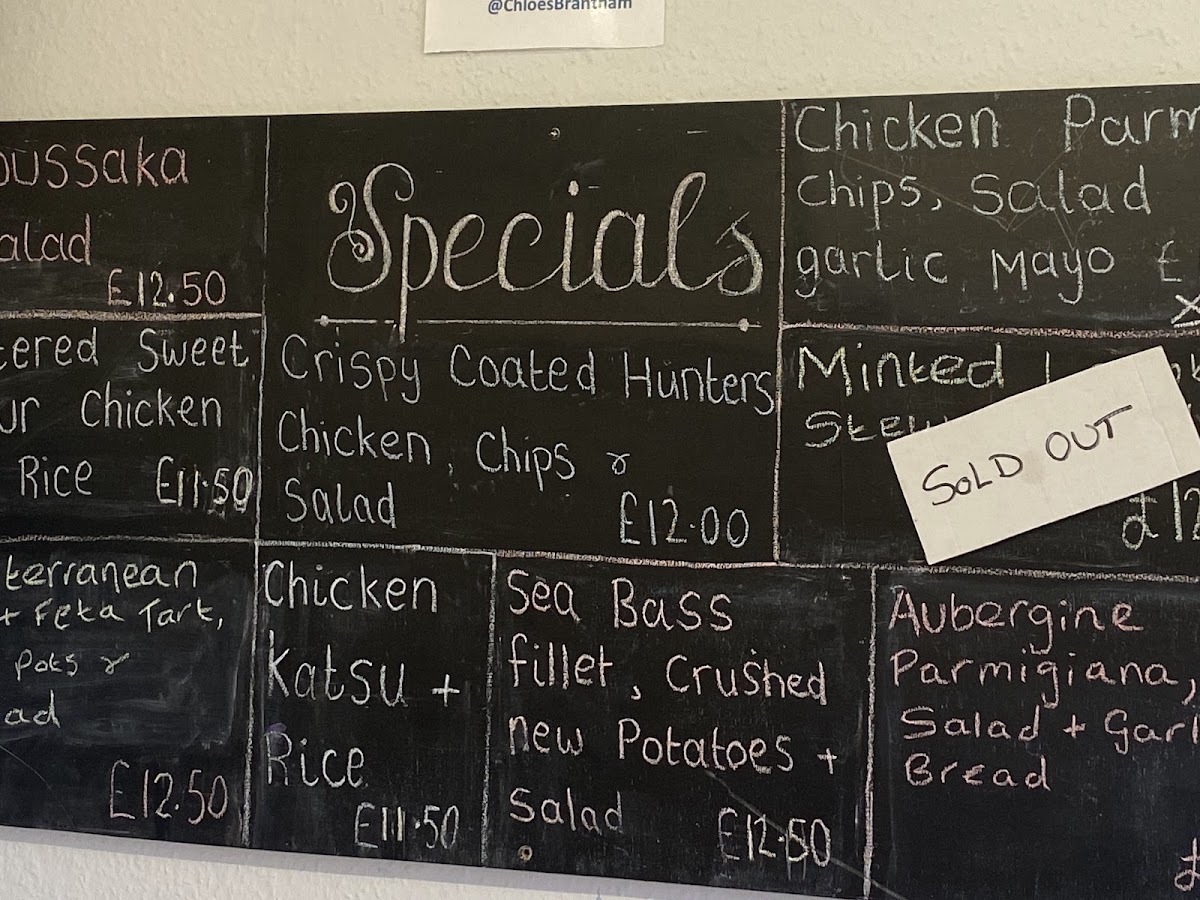 @ChloesBrantham
oussaka
alad
£12.50
Specials
Chicken Parm
Chips, Salad
garlic Mayo £
tered Sweet
ur Chicken
Rice £11.50
Crispy Coated Hunters
Chicken, Chips &
Salad
£12.00
Minted
Stew
SOLD OUT
£12
terranean
+ Feta Tart,
Pots &
ad
£12.50
Chicken
Katsu +
Rice
£11.50
Sea Bass
fillet, Crushed
new Potatoes +
Salad £12.50
Aubergine
Parmigiana,
Salad + Garl
Bread
£